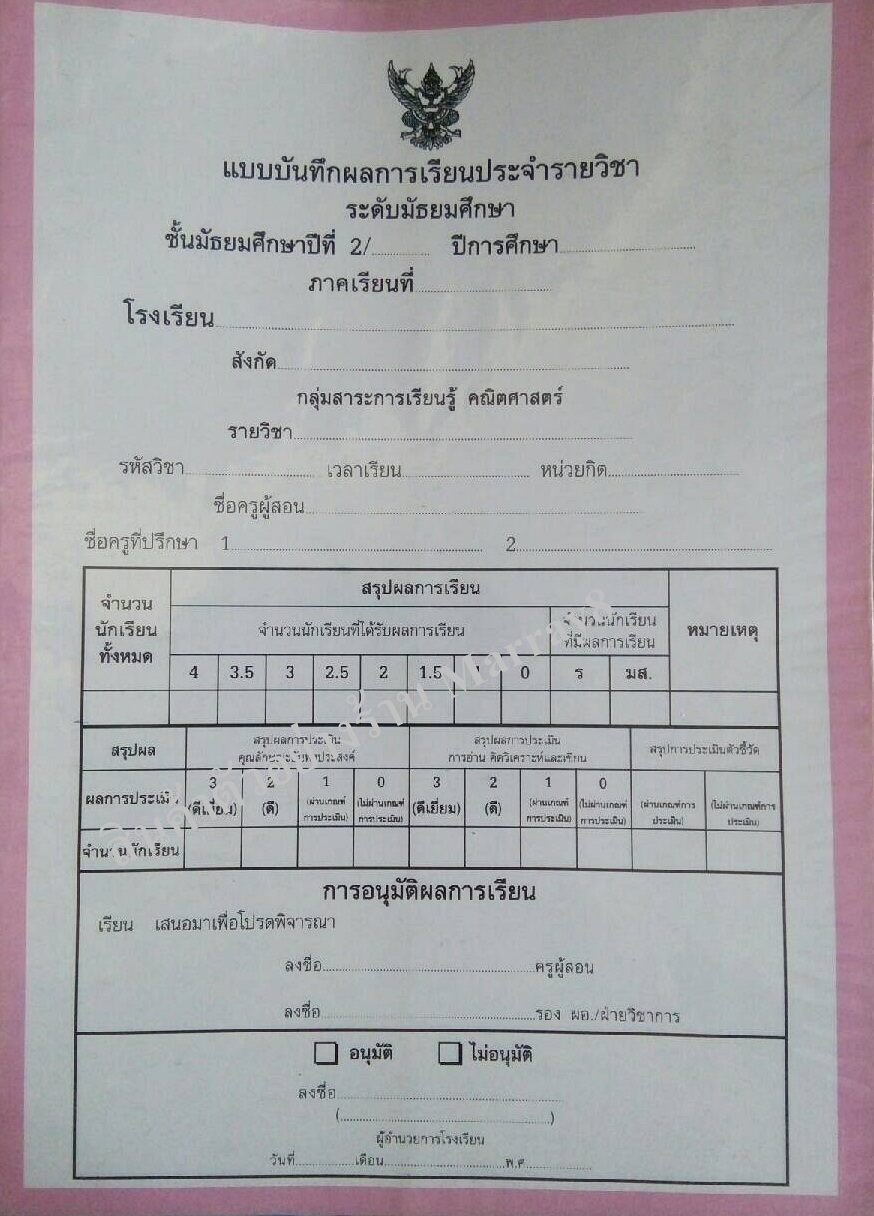 แบบบันทึกผลการเรียนประจำรายวิชา
ระดับมัธยมศึกษา
ชั้นมัธยมศึกษาปีที่ 2/............ ปีการศึกษา............................
ภาคเรียนที่............................
โรงเรียน........................................................................
สังกัด........................................................................
กลุ่มสาระการเรียนรู้ คณิตศาสตร์
รายวิชา........................................................................
รหัสวิชา............................ เวลาเรียน............................ หน่วยกิต............................
ชื่อครูผู้สอน........................................................................
ชื่อครูที่ปรึกษา 1........................................................ 2........................................................
จำนวนนักเรียนทั้งหมด สรุปผลการเรียน หมายเหตุ
จำนวนนักเรียนที่ได้รับผลการเรียน จำนวนนักเรียนที่มีผลการเรียน
4 3.5 3 2.5 2 1.5 1 0 ร มส.
สรุปผล สรุปผลการประเมินคุณลักษณะอันพึงประสงค์ สรุปผลการประเมินการอ่าน คิดวิเคราะห์และเขียน สรุปการประเมินตัวชี้วัด
ผลการประเมิน 3 2 1 0 3 2 1 0
(ดีเยี่ยม) (ดี) (ผ่านเกณฑ์การประเมิน) (ไม่ผ่านเกณฑ์การประเมิน) (ดีเยี่ยม) (ดี) (ผ่านเกณฑ์การประเมิน) (ไม่ผ่านเกณฑ์การประเมิน) (ผ่านเกณฑ์การประเมิน) (ไม่ผ่านเกณฑ์การประเมิน)
จำนวนนักเรียน
การอนุมัติผลการเรียน
เรียน เสนอมาเพื่อโปรดพิจารณา
ลงชื่อ............................................ครูผู้สอน
ลงชื่อ............................................รอง ผอ./ฝ่ายวิชาการ
อนุมัติ ไม่อนุมัติ
ลงชื่อ............................................
(............................................)
ผู้อำนวยการโรงเรียน
วันที่..............เดือน............................พ.ศ...............